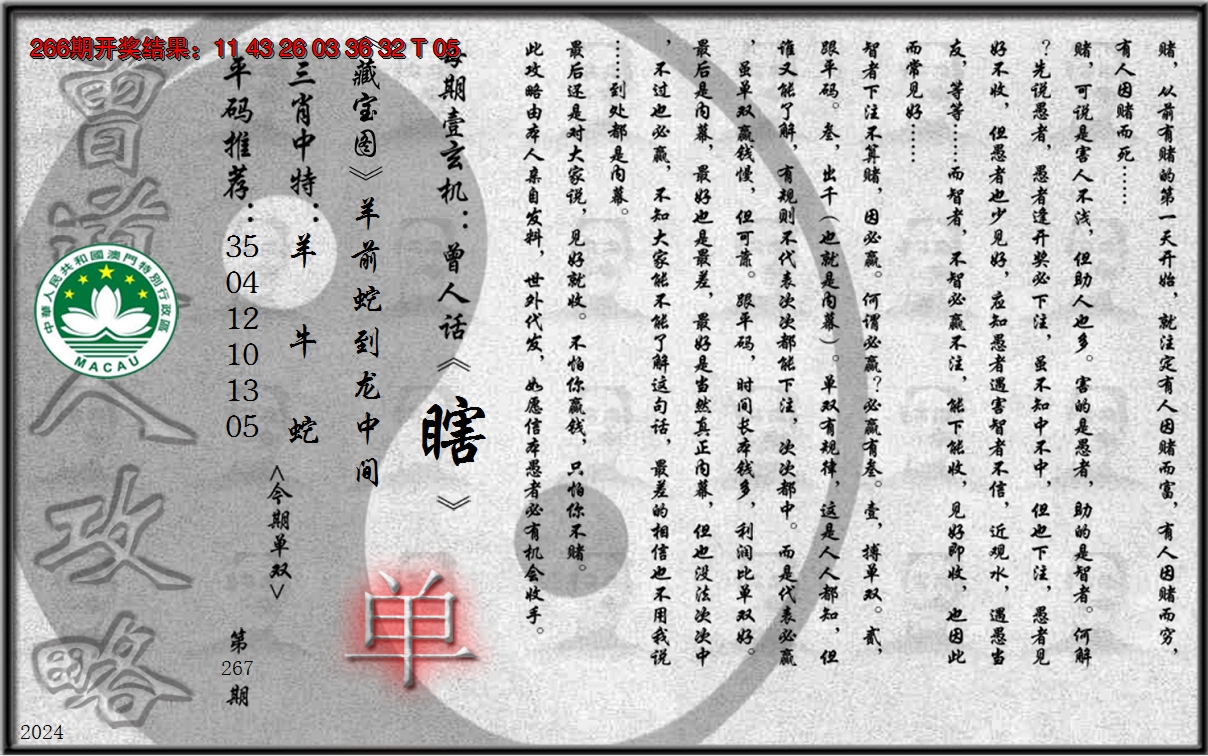 266期开奖结果：11 43 26 03 36 32 T 05
赌，从前有赌的第一天开始，就注定有人因赌而富，有人因赌而穷，
有人因赌而死……
赌，可说是害人不浅，但助人也多。害的是愚者，助的是智者。何解
？先说愚者，愚者逢开奖必下注，虽不知中不中，但也下注，愚者见
好不收，但愚者也少见好，应知愚者遇害智者不信，近观水，遇愚当
友，等等……而智者，不智必赢不注，能下能收，见好即收，也因此
而常见好……
智者下注不算赌，因必赢。何谓必赢？必赢有叁。壹，搏单双。贰，
跟平码。叁，出千（也就是内幕）。单双有规律，这是人人都知，但
谁又能了解，有规则不代表次次都能下注，次次都中。而是代表必赢
，虽单双赢钱慢，但可靠。跟平码，时间长本钱多，利润比单双好。
最后是内幕，最好也是最差，最好是当然真正内幕，但也没法次次中
，不过也必赢，不知大家能不能了解这句话，最差的相信也不用我说
……到处都是内幕。
最后还是对大家说，见好就收。不怕你赢钱，只怕你不赌。
此攻略由本人亲自发料，世外代发，如愿信本愚者必有机会收手。
每期壹玄机：曾人话《瞎》
《藏宝图》羊前蛇到龙中间
单
三肖中特：羊 牛 蛇
<今期单双>
平码推荐：35 04 12 10 13 05
第267期
曾道人攻略
中華人民共和國澳門特別行政區
MACAU
2024